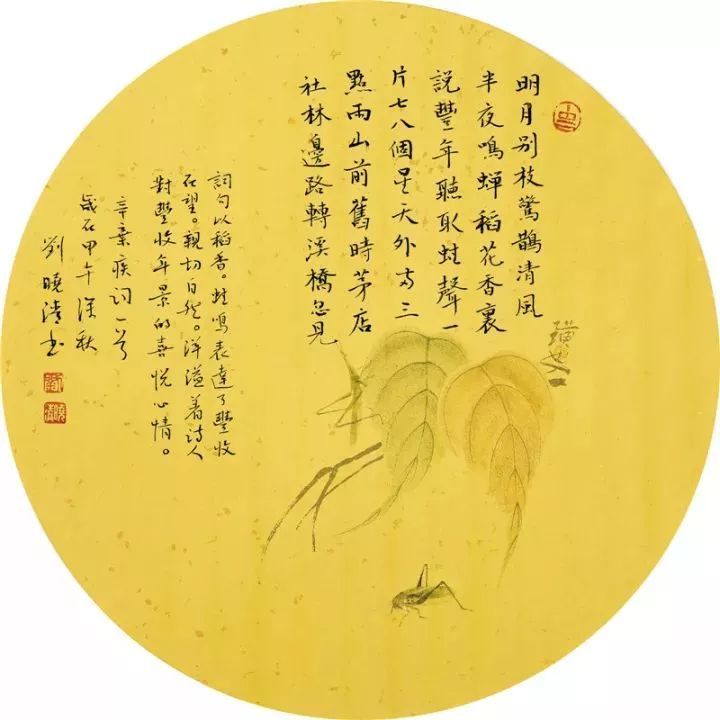 明月别枝驚鵲清風
半夜鳴蝉稻花香裏
説豐年聽取蛙聲一
片七八個星天外两三
點雨山前舊時茅店
社林邊路轉溪橋忽見
詞句以稻香。蛙鳴表達了豐收
在望。親切自然。洋溢着诗人
對豐收年景的喜悦心情。
辛棄疾词一首
歲在甲午深秋
劉曉清书